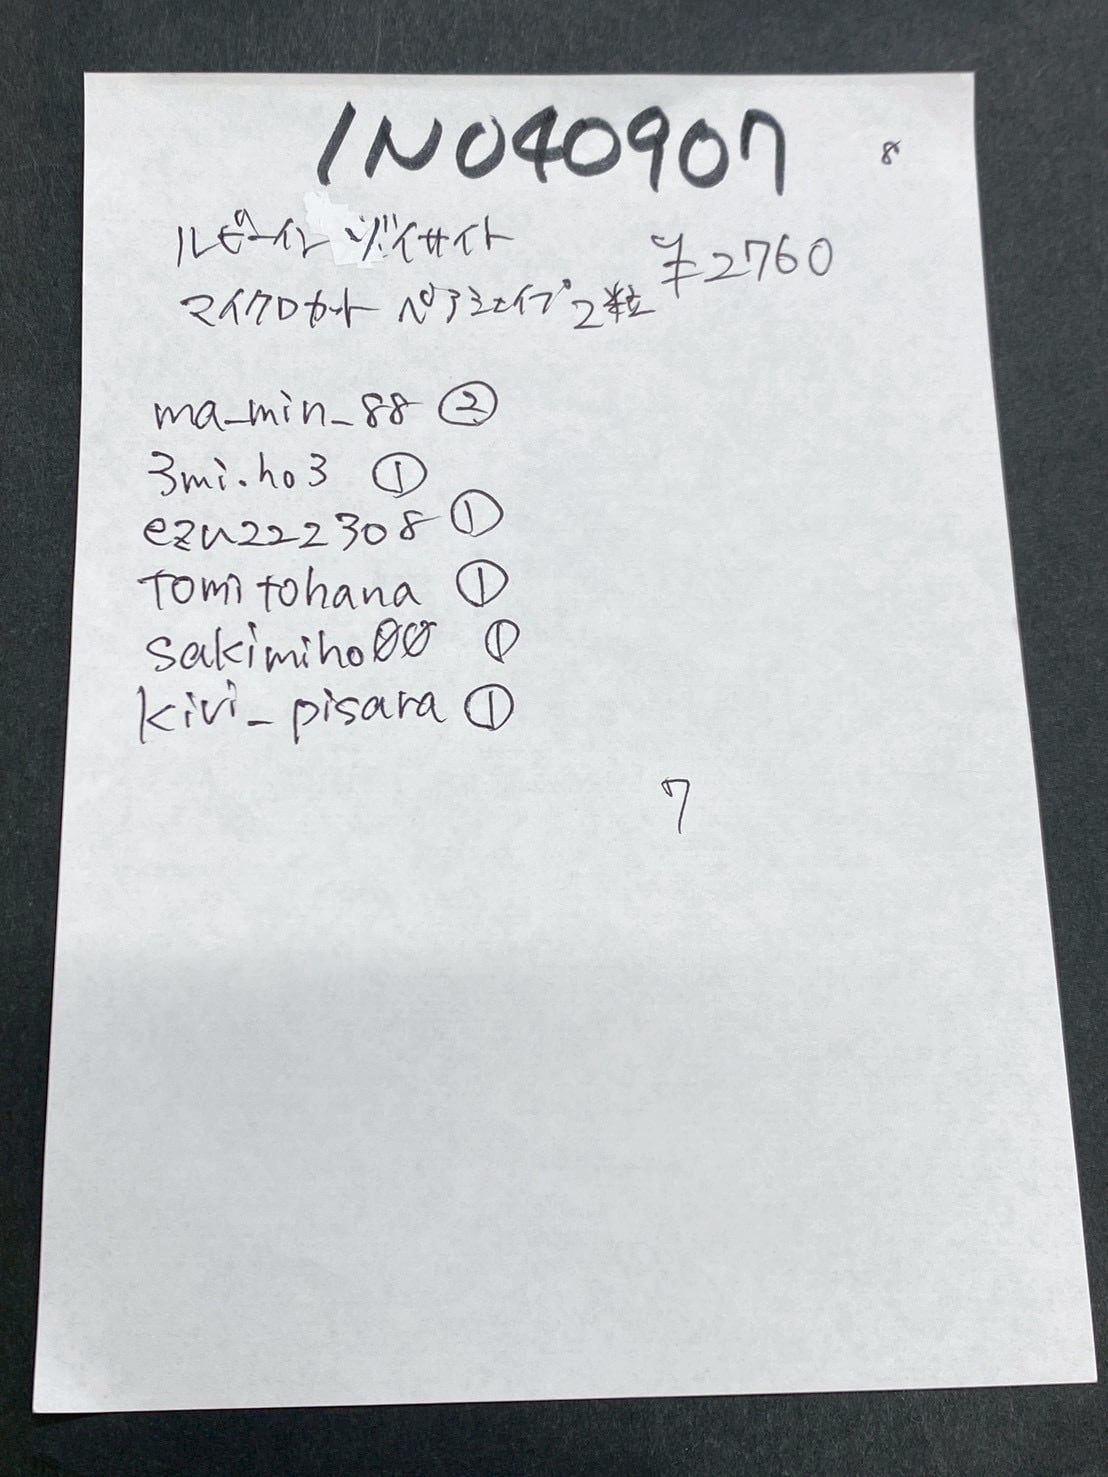 IN040907 8
ルビーインゾイサイト
マイクロカット ペアシェイプ2粒 ¥2760
ma_min_88 ②
3mi.ho3 ①
ezu222308 ①
tomitohana ①
sakimiho00 ①
kivi_pisara ①
7